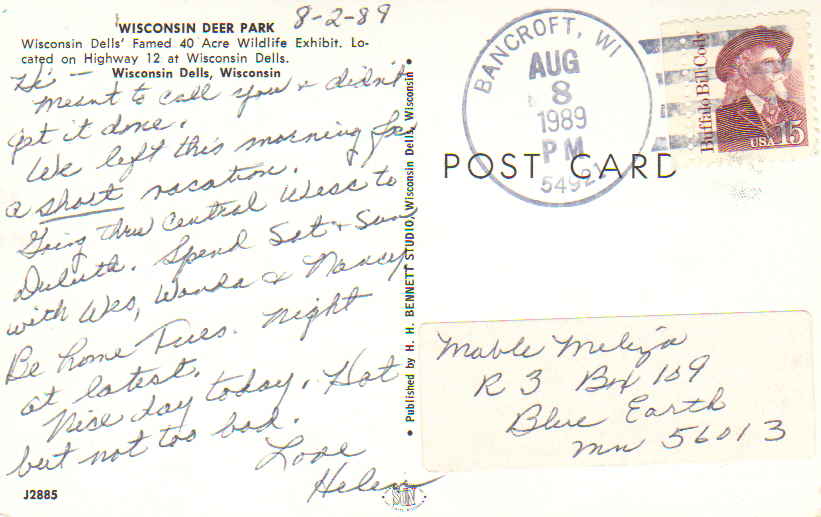 WISCONSIN DEER PARK 8-2-89
Wisconsin Dells' Famed 40 Acre Wildlife Exhibit. Lo-
cated on Highway 12 at Wisconsin Dells.
Wisconsin Dells, Wisconsin
Hi —
Meant to call you & didn't
get it done.
We left this morning for
a short vacation.
Going thru Central Wisc to
Duluth. Spend Sat & Sun
with Wes, Wanda & Nancy
Be home Tues. night
at latest.
Nice day today. Hot
but not too bad.
Love
Helen
J2885
• Published by H. H. BENNETT STUDIO, Wisconsin Dells, Wisconsin •
BANCROFT, WI
AUG
8
1989
PM
54921
Buffalo Bill Cody
USA 15
POST CARD
Mable Meliza
R 3 Box 109
Blue Earth
Mn 56013